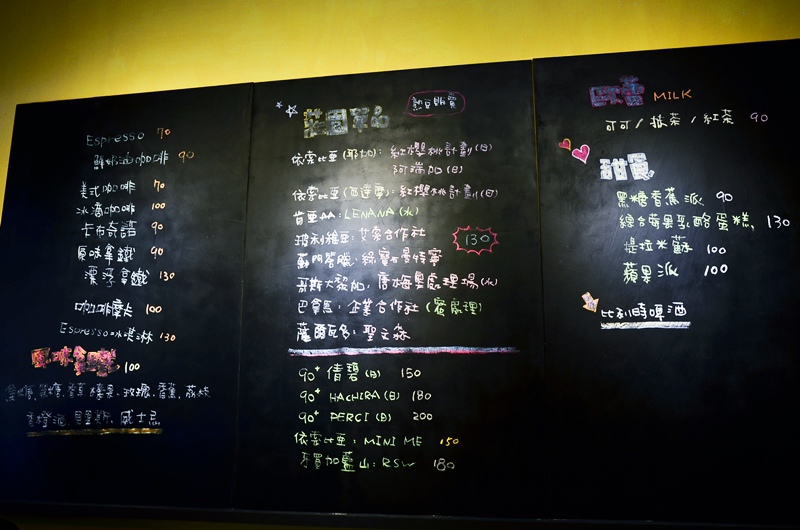 Espresso 70
鮮奶油咖啡 90
美式咖啡 70
冰滴咖啡 100
卡布奇諾 90
原味拿鐵 90
漂浮拿鐵 130
咖啡摩卡 100
Espresso冰淇淋 130
100
玫瑰、香蕉、荔枝
香橙酒、貝里斯、威士忌
莊園單品
熱豆販賣
依索比亞(耶加):紅櫻桃計劃(日)
阿瑞加(日)
依索比亞(西達摩):紅櫻桃計劃(日)
肯亞AA:LENANA(水)
玻利維亞:艾索合作社
130
蘇門答臘:綠寶石曼特寧
哥斯大黎加:唐梅里處理場(水)
巴拿馬:企業合作社(蜜處理)
薩爾瓦多:聖艾森
90+ 倩碧(日) 150
90+ HACHIRA(日) 180
90+ PERCI(日) 200
依索比亞:MINI ME 150
牙買加藍山:RSW 180
MILK
可可/抹茶/紅茶 90
甜食
黑糖香蕉派 90
綜合莓果乳酪蛋糕 130
提拉米蘇 100
蘋果派 100
比利時啤酒